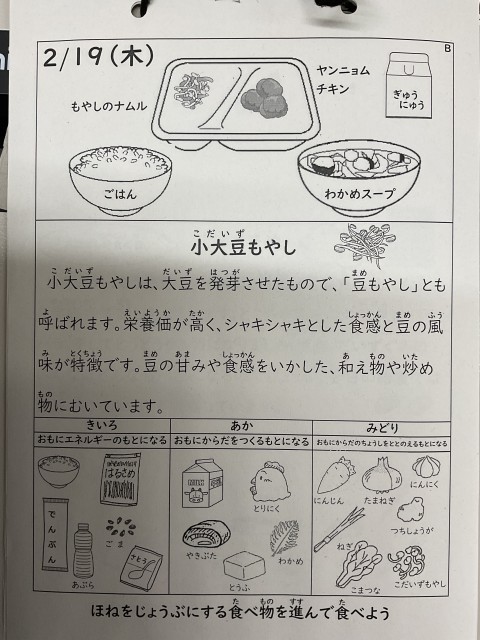 2/19(木)
B
ヤンニョム
チキン
もやしのナムル
ぎゅう
にゅう
ごはん
わかめスープ
小大豆もやし
小大豆もやしは、大豆を発芽させたもので、「豆もやし」とも
呼ばれます。栄養価が高く、シャキシャキとした食感と豆の風
味が特徴です。豆の甘みや食感をいかした、和え物や炒め
物にむいています。
きいろ
あか
みどり
おもにエネルギーのもとになる
おもにからだをつくるもとになる
おもにからだのちょうしをととのえるもとになる
はるさめ
でんぷん
ごま
さとう
あぶら
とりにく
やきぶた
わかめ
とうふ
にんじん
たまねぎ
にんにく
つちしょうが
ねぎ
こまつな
こだいずもやし
ほねをじょうぶにする食べ物を進んで食べよう